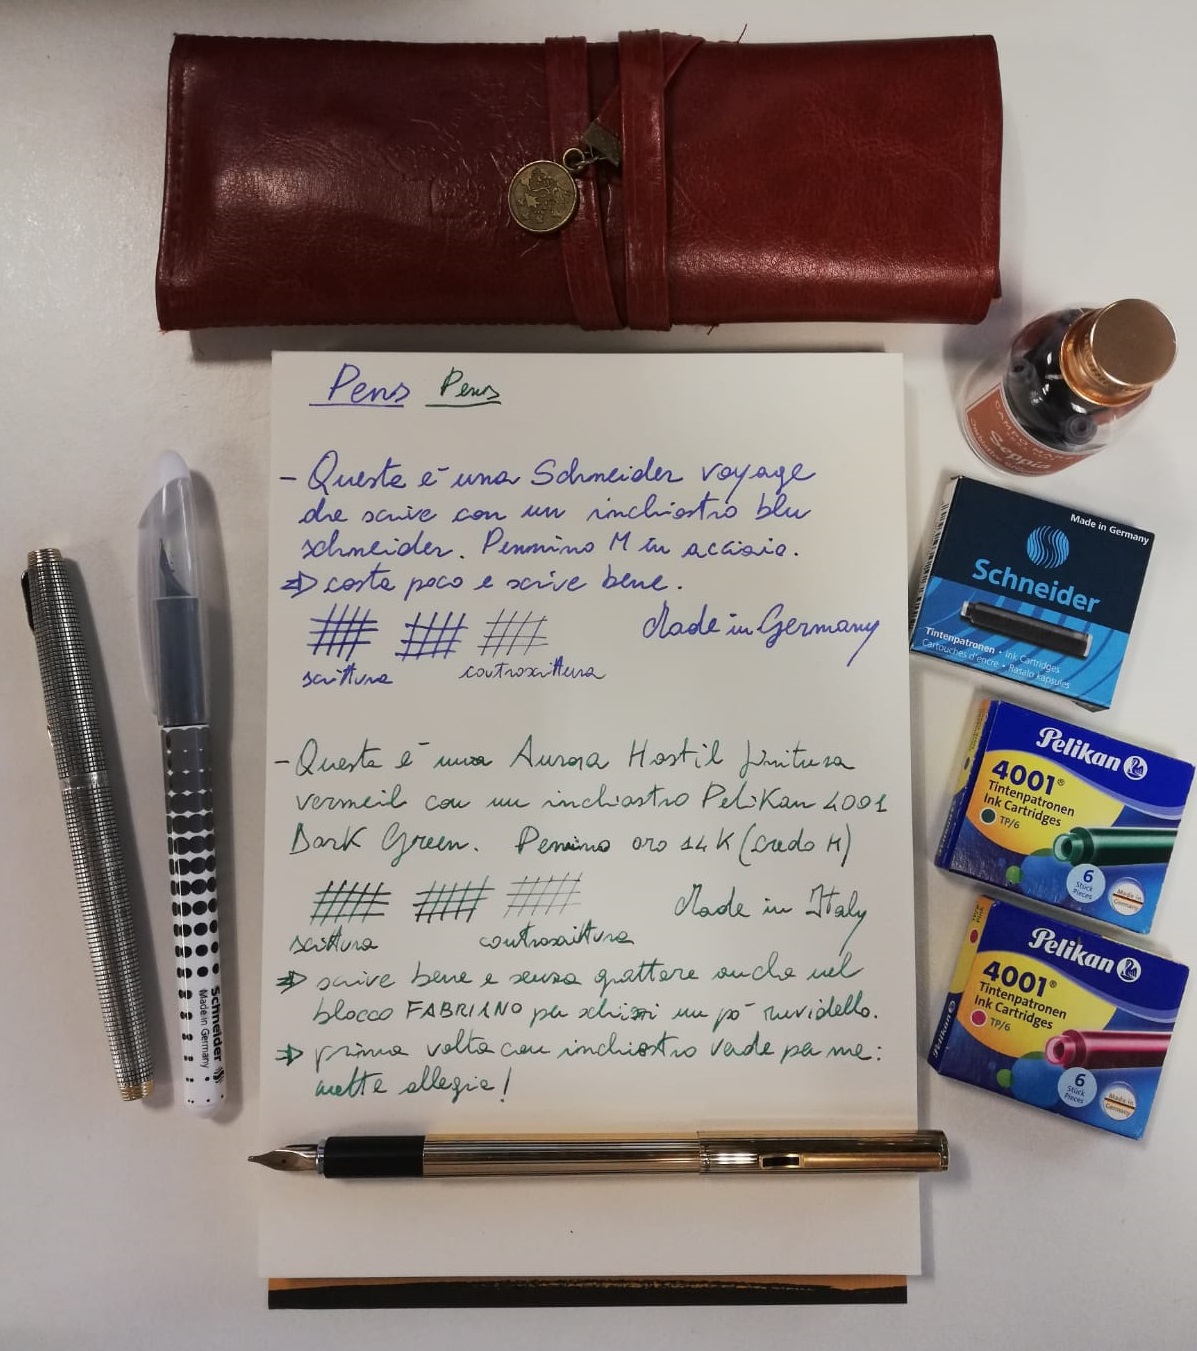 Pens Pens
- Questa è una Schneider voyage
che scrive con un inchiostro blu
schneider. Pennino M in acciaio.
⇒ costa poco e scrive bene.
Made in Germany
scrittura controscrittura
- Questa è una Aurora Hastil finitura
vermeil con un inchiostro Pelikan 4001
Dark Green. Pennino oro 14K (credo M)
Made in Italy
scrittura controscrittura
⇒ scrive bene e senza grattare anche nel
blocco FABRIANO per schizzi un pò ruvidello.
⇒ prima volta con inchiostro verde per me:
mette allegria!
Schneider
Made in Germany
Seppia
Made in Germany
Schneider
Tintenpatronen • Ink Cartridges
Cartouches d'encre • Rašalo kapsulės
Pelikan
4001®
Tintenpatronen
Ink Cartridges
TP/6
6
Stück
Pieces
Made in
Germany
Pelikan
4001®
Tintenpatronen
Ink Cartridges
TP/6
6
Stück
Pieces
Made in
Germany